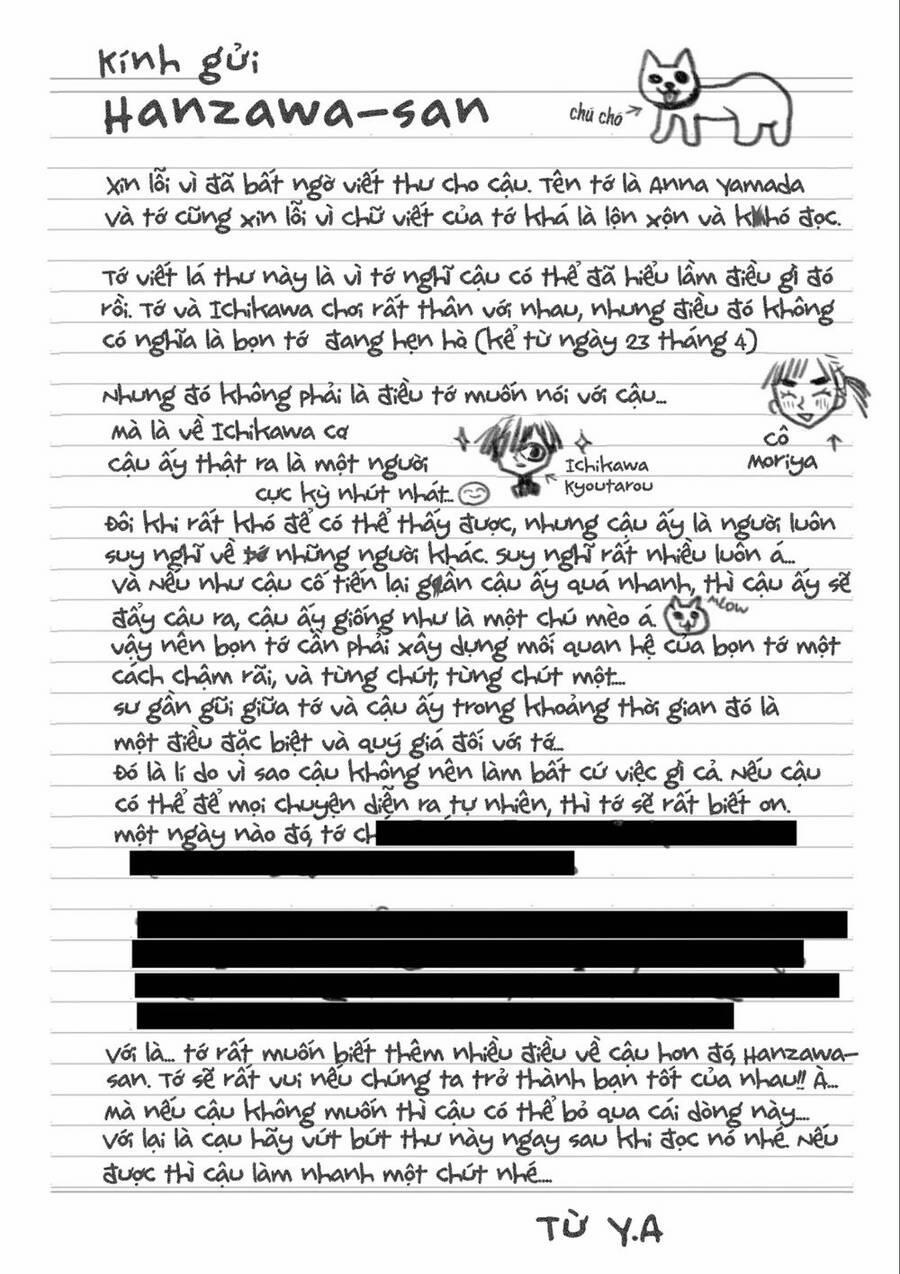 Kính gửi
Hanzawa-san
chú chó
Xin lỗi vì đã bất ngờ viết thư cho cậu. Tên tớ là Anna Yamada
và tớ cũng xin lỗi vì chữ viết của tớ khá là lộn xộn và khó đọc.
Tớ viết lá thư này là vì tớ nghĩ cậu có thể đã hiểu lầm điều gì đó
rồi. Tớ và Ichikawa chơi rất thân với nhau, nhưng điều đó không
có nghĩa là bọn tớ đang hẹn hò (kể từ ngày 23 tháng 4)
Nhưng đó không phải là điều tớ muốn nói với cậu...
mà là về Ichikawa cơ
cậu ấy thật ra là một người
cực kỳ nhút nhát...
Ichikawa
Kyoutarou
cô
Moriya
Đôi khi rất khó để có thể thấy được, nhưng cậu ấy là người luôn
suy nghĩ về những người khác. Suy nghĩ rất nhiều luôn á...
và Nếu như cậu cố tiến lại gần cậu ấy quá nhanh, thì cậu ấy sẽ
đẩy câu ra, cậu ấy giống như là một chú mèo á.
meow
vậy nên bọn tớ cần phải xây dựng mối quan hệ của bọn tớ một
cách chậm rãi, và từng chút, từng chút một...
sư gần gũi giữa tớ và cậu ấy trong khoảng thời gian đó là
một điều đặc biệt và quý giá đối với tớ...
Đó là lí do vì sao cậu không nên làm bất cứ việc gì cả. Nếu cậu
có thể để mọi chuyện diễn ra tự nhiên, thì tớ sẽ rất biết ơn.
một ngày nào đó, tớ ch
Với là... tớ rất muốn biết thêm nhiều điều về cậu hơn đó, Hanzawa-
san. Tớ sẽ rất vui nếu chúng ta trở thành bạn tốt của nhau!! À...
mà nếu cậu không muốn thì cậu có thể bỏ qua cái dòng này....
với lại là cạu hãy vứt bứt thư này ngay sau khi đọc nó nhé. Nếu
được thì cậu làm nhanh một chút nhé....
Từ Y.A